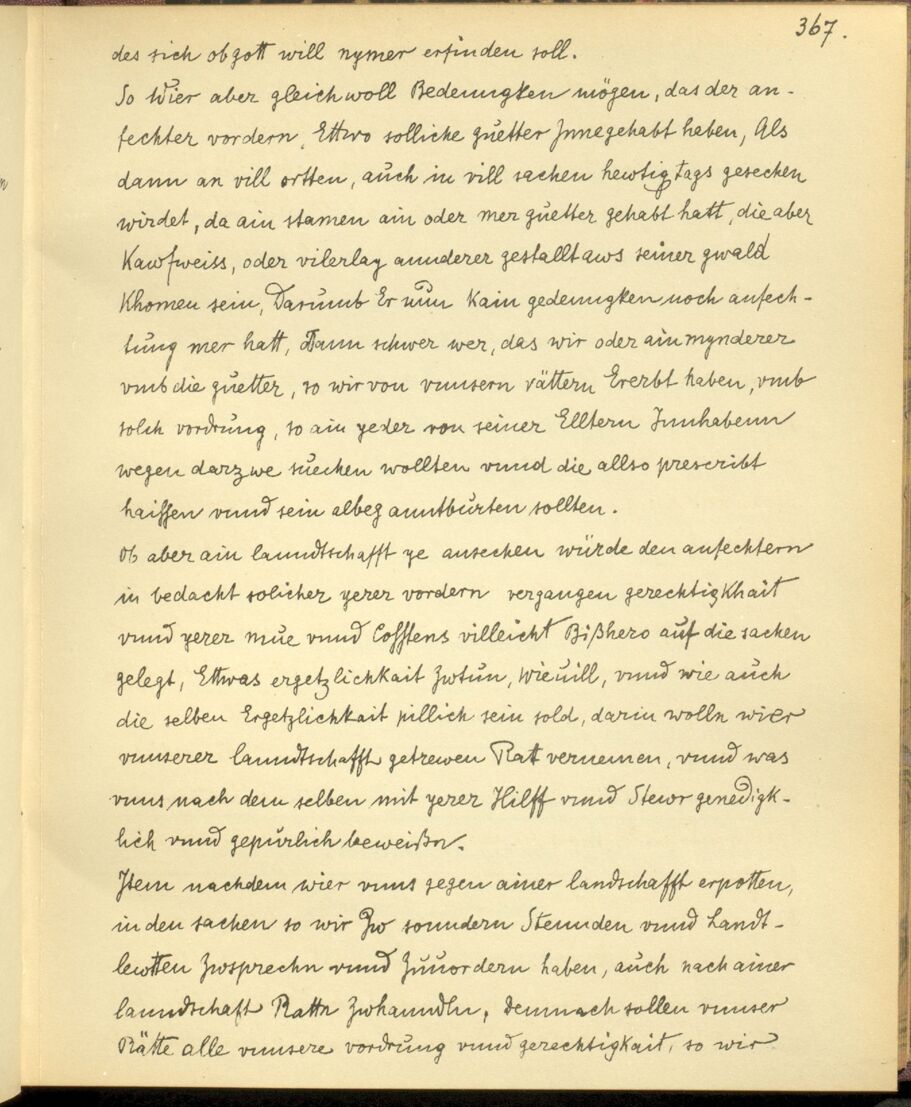 367.
des sich ob gott will nymer erfinden soll.
So Wier aber gleichwoll Bedenngken mögen, das der an-
fechter vordern, Ettwo solliche guetter Innegehabt haben, Als
dann an vill ortten, auch in vill sachen hewtig tags gesechen
wirdet, da ain stamen ain oder mer guetter gehabt hatt, die aber
Kawfweiss, oder vilerlay annderer gestallt aws seiner gwald
Khomen sein, Darumb Er nun Kain gedenngken noch anfech-
tung mer hatt, Dann schwer wer, das wir oder ain mynderer
vmb die guetter, so wir von vnnsern vättern Ererbt haben, vmb
solch vordrung, so ain yeder von seiner Elltern Innhabenn
wegen darzwe suechen wollten vnnd die allso prescribt
haissen vnnd sein albeg anntburten sollten.
Ob aber ain lanndtschafft ye ansechen würde den anfechtern
in bedacht solicher yerer vordern vergangen gerechtigkhait
vnnd yerer mue vnnd Cosstens villeicht Bißhero auf die sachen
gelegt, Ettwas ergetzlichkait zwtun, wieuill, vnnd wie auch
die selben Ergetzlichkait pillich sein sold, darin wolln wier
vnnserer lanndtschafft getrewen Ratt vernemen, vnnd was
vnns nach dem selben mit yerer Hilff vnnd Stewr genedigk-
lich vnnd gepürlich beweißn.
Item nachdem wier vnns gegen ainer landschafft erpotten,
in den sachen so wir Zw sonndern Stennden vnnd Landt-
lewtten zwsprechn vnnd Zuuordern haben, auch nach ainer
lanndschaft Rattn zwhanndln, demnach sollen vnnser
Rätte alle vnnsere vordrung vnnd gerechtigkait, so wir